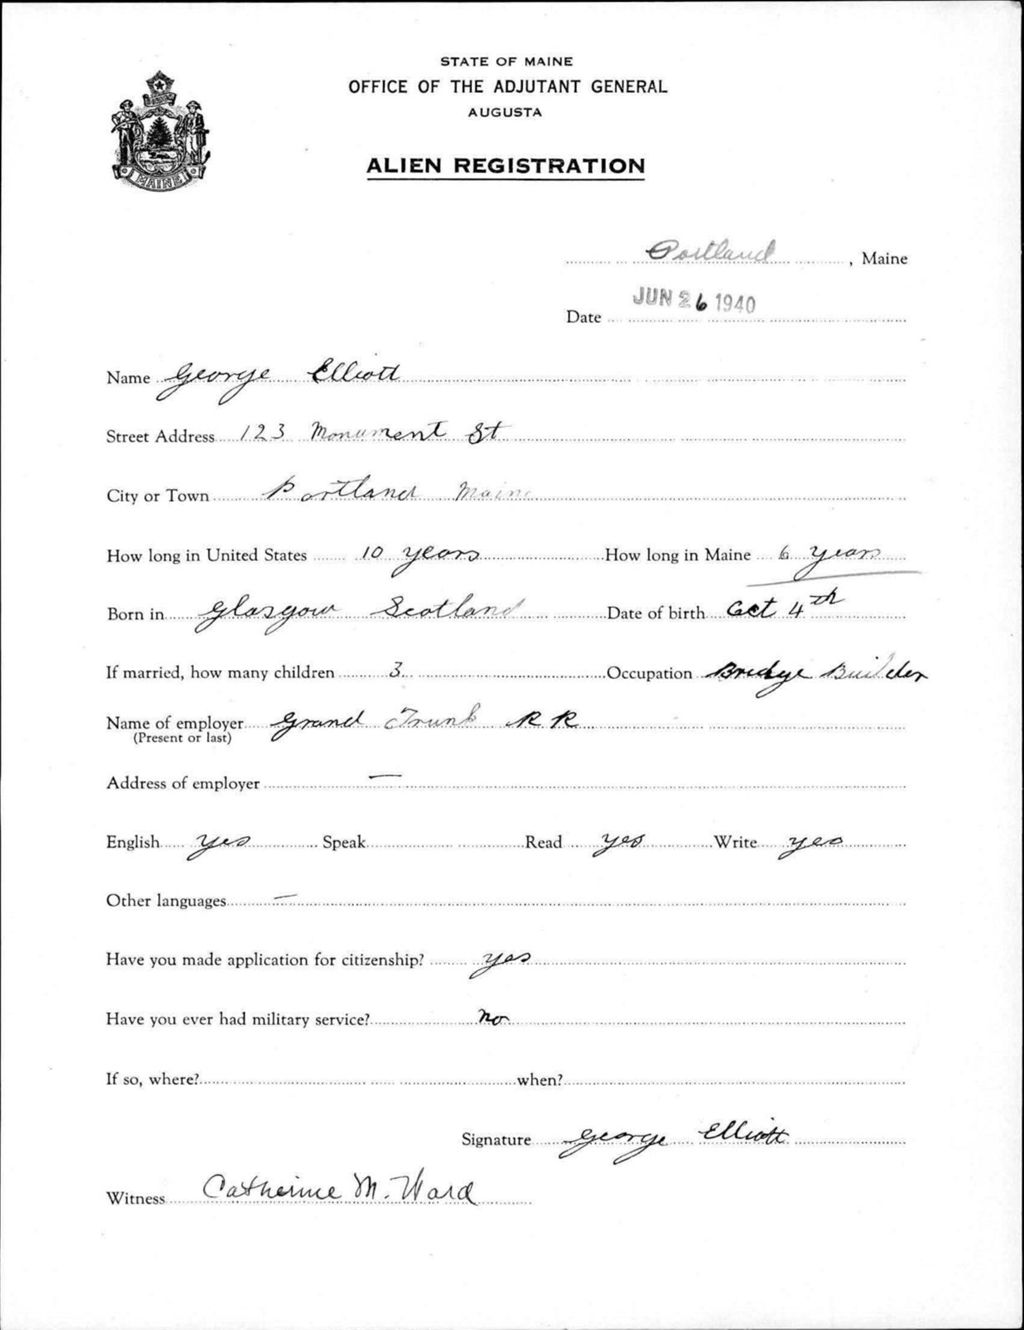 STATE OF MAINE
OFFICE OF THE ADJUTANT GENERAL
AUGUSTA
MAINE
ALIEN REGISTRATION
Portland, Maine
JUN 26 1940
Date
Name George Elliott
Street Address 123 Monument St
City or Town Portland Maine
How long in United States 10 years How long in Maine 6 years
Born in Glasgow Scotland Date of birth Oct 4th
If married, how many children 3 Occupation Bridge Builder
Name of employer Grand Trunk RR
(Present or last)
Address of employer —
English yes Speak Read yes Write yes
Other languages —
Have you made application for citizenship? yes
Have you ever had military service? no
If so, where? when?
Signature George Elliott
Witness Catherine M. Ward